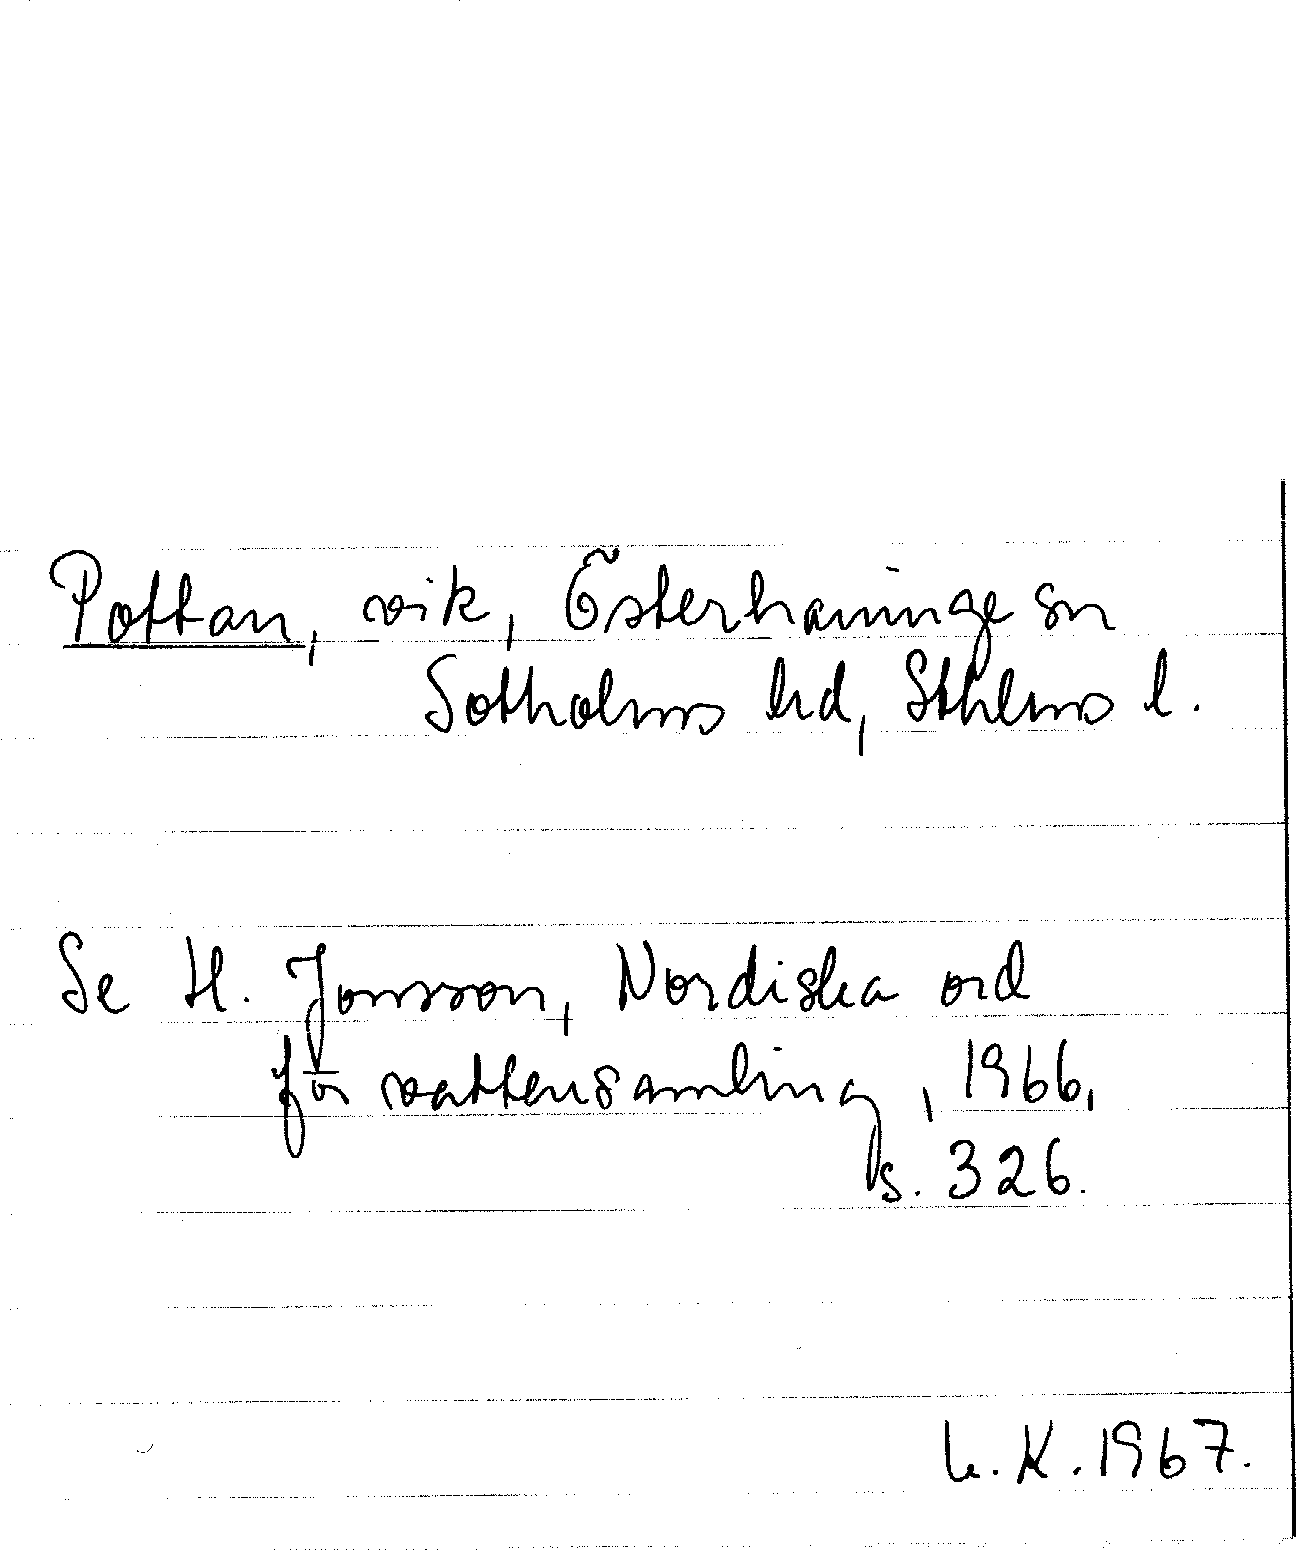 Pottan, vik, Österhaninge sn
Sotholms hd, Sthlms l.
Se H. Jonsson, Nordiska ord
för vattensamling, 1966,
s. 326.
L. K. 1967.